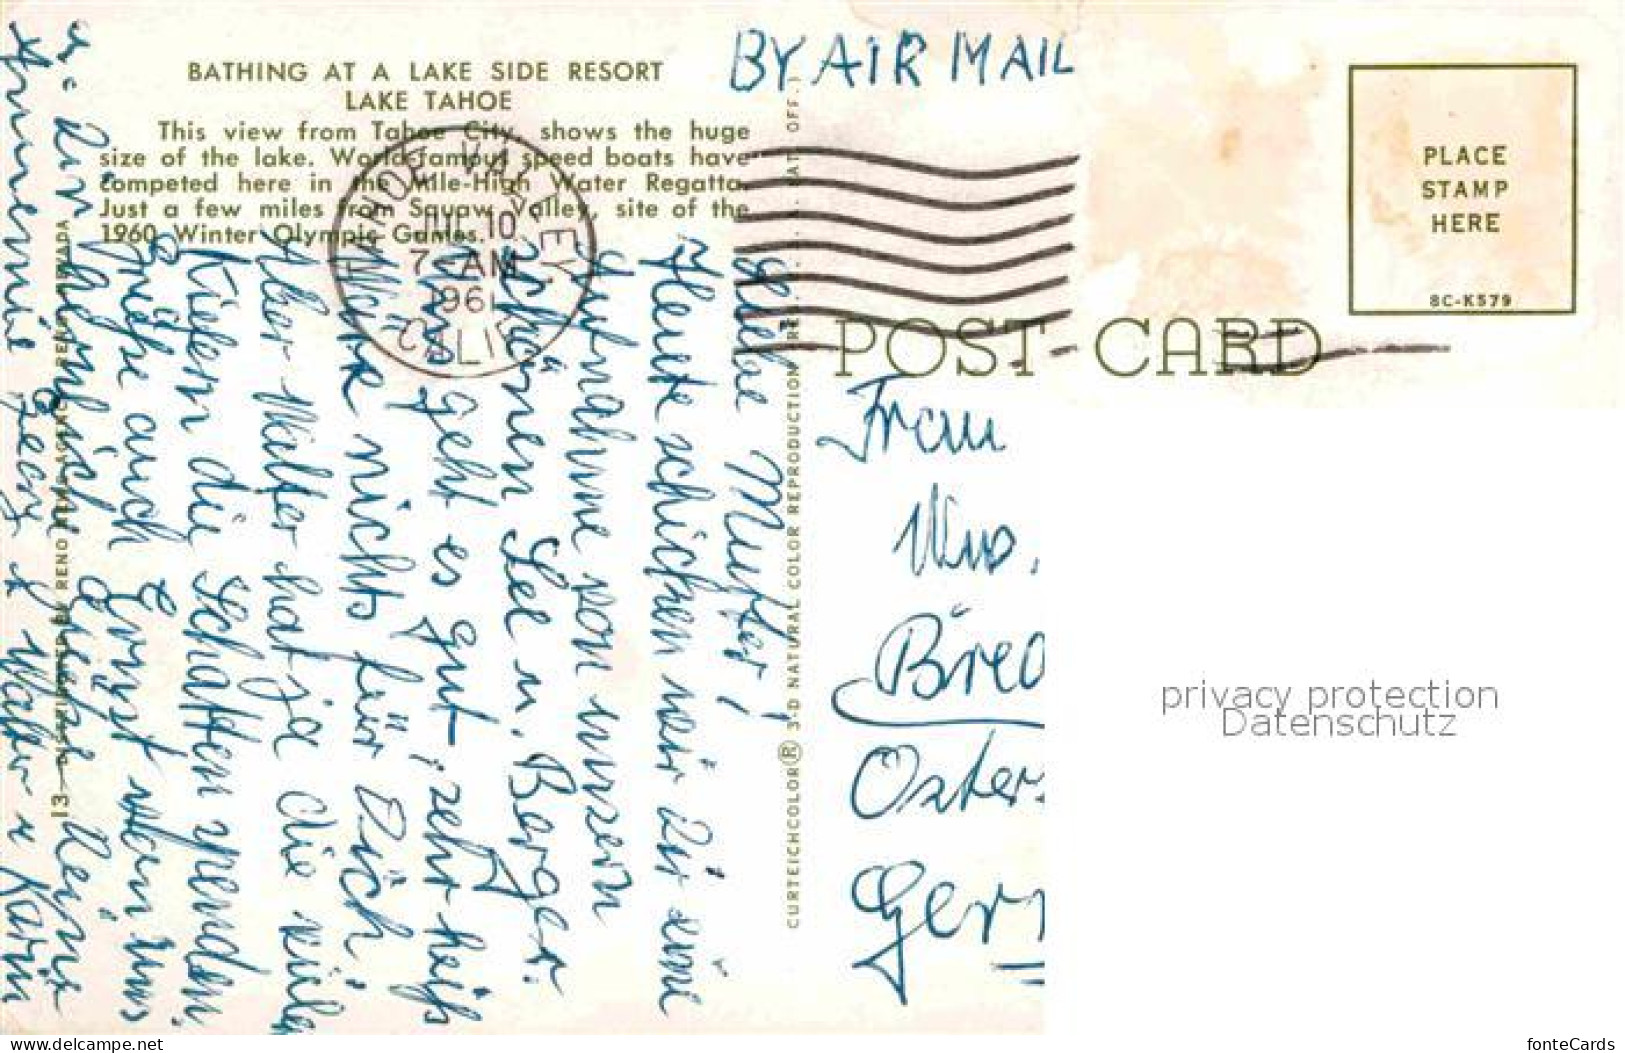 BATHING AT A LAKE SIDE RESORT
LAKE TAHOE
This view from Tahoe City, shows the huge
size of the lake. World-famous speed boats have
competed here in the Mile-High Water Regatta.
Just a few miles from Squaw Valley, site of the
1960 Winter Olympic Games.
BY AIR MAIL
TAHOE VALLEY
JUL 10
7 - AM
1961
CALIF.
PLACE
STAMP
HERE
8C-K579
POST CARD
CURTEICHCOLOR® 3-D NATURAL COLOR REPRODUCTION
Liebe Mutter!
Heute schicken wir Dir eine
Aufnahme von unsern
schönen See u. Berger.
Uns geht es gut, sehr heiß
Wäre nichts für Dich,
Aber Walter hat ja die viele
Kiefern die Schatten spenden.
Grüße auch Ernst von uns
u. Dir herzliche Grüße Deine
Annemie Georg & Walter u Karin
Frau
Wwo.
Bred
Oster
Ger
privacy protection
Datenschutz
www.delcampe.net
fonteCards